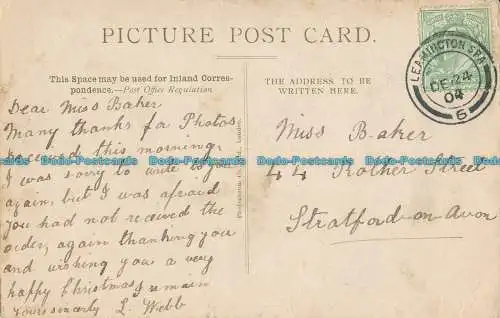 PICTURE POST CARD.
This Space may be used for Inland Corres-
pondence.—Post Office Regulation
THE ADDRESS TO BE
WRITTEN HERE.
LEAMINGTON SPA
DE 24
04
6
Dear Miss Baker
Many thanks for Photos
received this morning,
I was sorry to write to you
again, but I was afraid
you had not received the
order, again thanking you
and wishing you a very
happy Christmas I remain
Yours sincerly L. Webb
Miss Baker
44 Rother Street
Stratford-on-Avon
Dodo-Postcards Dodo-Postcards Dodo-Postcards Dodo-Postcards
London.